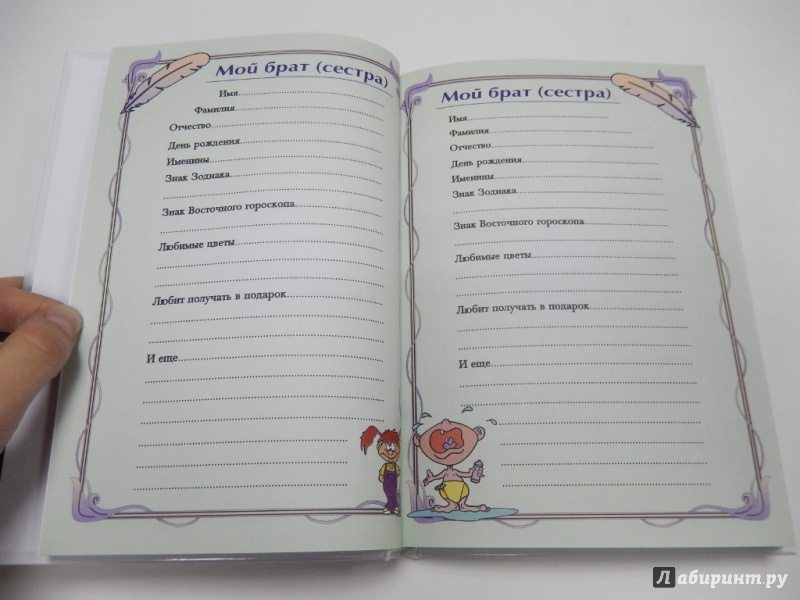 Мой брат (сестра)
Имя
Фамилия
Отчество
День рождения
Именины
Знак Зодиака
Знак Восточного гороскопа
Любимые цветы
Любит получать в подарок
И еще
Мой брат (сестра)
Имя
Фамилия
Отчество
День рождения
Именины
Знак Зодиака
Знак Восточного гороскопа
Любимые цветы
Любит получать в подарок
И еще
Лабиринт.ру